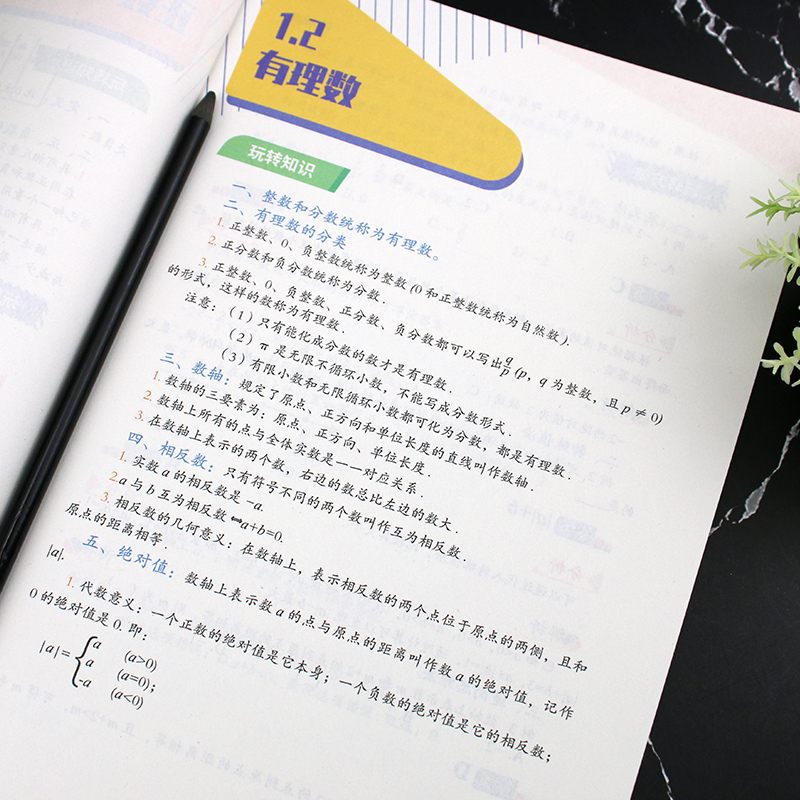 1.2
有理数
玩转知识
一、整数和分数统称为有理数。
二、有理数的分类
1. 正整数、0、负整数统称为整数(0和正整数统称为自然数).
2. 正分数和负分数统称为分数.
3. 正整数、0、负整数、正分数、负分数都可以写出q/p(p，q为整数，且p≠0)
的形式，这样的数称为有理数.
注意：(1)只有能化成分数的数才是有理数.
(2)π是无限不循环小数，不能写成分数形式.
(3)有限小数和无限循环小数都可化为分数，都是有理数.
三、数轴：规定了原点、正方向和单位长度的直线叫作数轴.
1. 数轴的三要素为：原点、正方向、单位长度.
2. 数轴上所有的点与全体实数是一一对应关系.
3. 在数轴上表示的两个数，右边的数总比左边的数大.
四、相反数：只有符号不同的两个数叫作互为相反数.
1. 实数a的相反数是-a.
2.a与b互为相反数⇔a+b=0.
3. 相反数的几何意义：在数轴上，表示相反数的两个点位于原点的两侧，且和
原点的距离相等.
五、绝对值：数轴上表示数a的点与原点的距离叫作数a的绝对值，记作
|a|.
1. 代数意义：一个正数的绝对值是它本身；一个负数的绝对值是它的相反数；
0的绝对值是0. 即：
a (a>0)
|a|={a (a=0)；
-a (a<0)